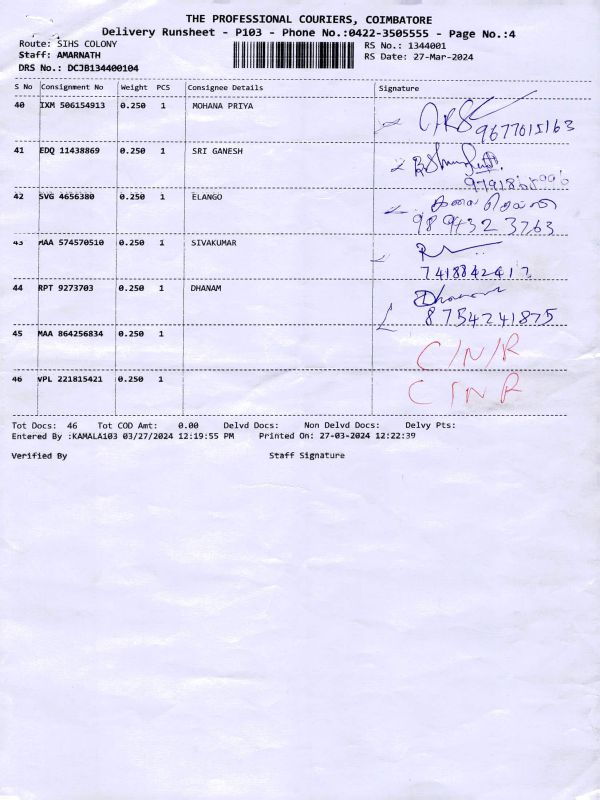 THE PROFESSIONAL COURIERS, COIMBATORE
Delivery Runsheet - P103 - Phone No.:0422-3505555 - Page No.:4
Route: SIHS COLONY RS No.: 1344001
Staff: AMARNATH RS Date: 27-Mar-2024
DRS No.: DCJB134400104
S No Consignment No Weight PCS Consignee Details Signature
40 IXM 506154913 0.250 1 MOHANA PRIYA
9677015163
41 EDQ 11438869 0.250 1 SRI GANESH
42 SVG 4656380 0.250 1 ELANGO
989432 3763
43 MAA 574570510 0.250 1 SIVAKUMAR
7418842412
44 RPT 9273703 0.250 1 DHANAM Dhanam
8754241875
45 MAA 864256834 0.250 1 C/N/R
46 VPL 221815421 0.250 1 C I N R
Tot Docs: 46 Tot COD Amt: 0.00 Delvd Docs: Non Delvd Docs: Delvy Pts:
Entered By :KAMALA103 03/27/2024 12:19:55 PM Printed On: 27-03-2024 12:22:39
Verified By Staff Signature